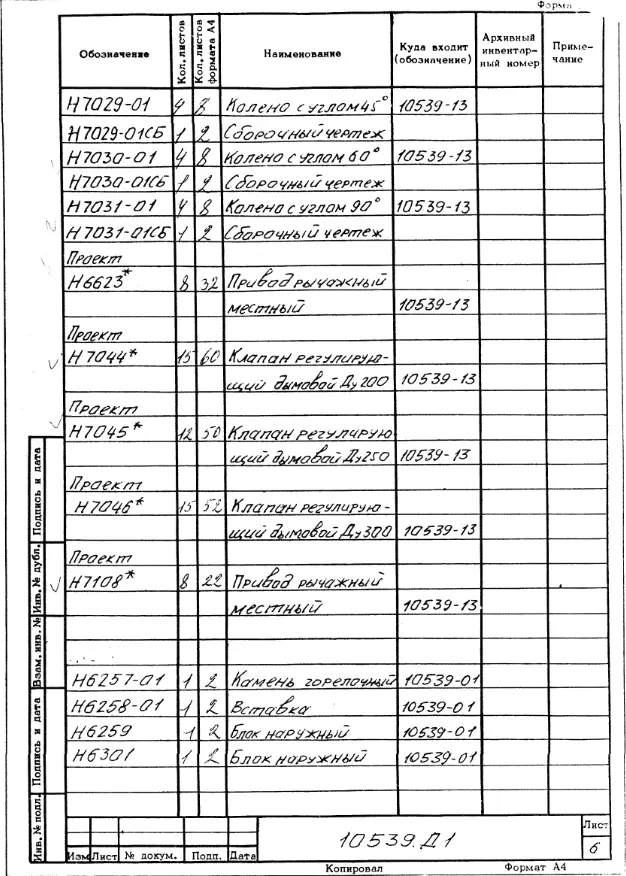 Форма
Обозначение Кол. листов Кол. листов формата А4 Наименование Куда входит (обозначение) Архивный инвентарный номер Примечание
Н7029-01 4 8 Колено с углом 45° 10539-13
Н7029-01СБ 1 2 Сборочный чертеж
Н7030-01 4 8 Колено с углом 60° 10539-13
Н7030-01СБ 1 2 Сборочный чертеж
Н7031-01 4 8 Колено с углом 90° 10539-13
Н7031-01СБ 1 2 Сборочный чертеж
Проект
Н6623* 8 32 Привод рычажный
местный 10539-13
Проект
Н7044* 15 60 Клапан регулирую-
щий дымовой Ду200 10539-13
Проект
Н7045* 12 50 Клапан регулирую
щий дымовой Ду250 10539-13
Проект
Н7046* 15 52 Клапан регулирую-
щий дымовой Ду300 10539-13
Проект
Н7108* 8 22 Привод рычажный
местный 10539-13
Н6257-01 1 2 Камень горелочный 10539-01
Н6258-01 1 2 Вставка 10539-01
Н6259 1 2 Блок наружный 10539-01
Н6301 1 2 Блок наружный 10539-01
Инв. № подл. Подпись и дата Взам. инв. № Инв. № дубл. Подпись и дата
10539.Д1
Лист
6
Изм Лист № докум. Подп. Дата
Копировал Формат А4